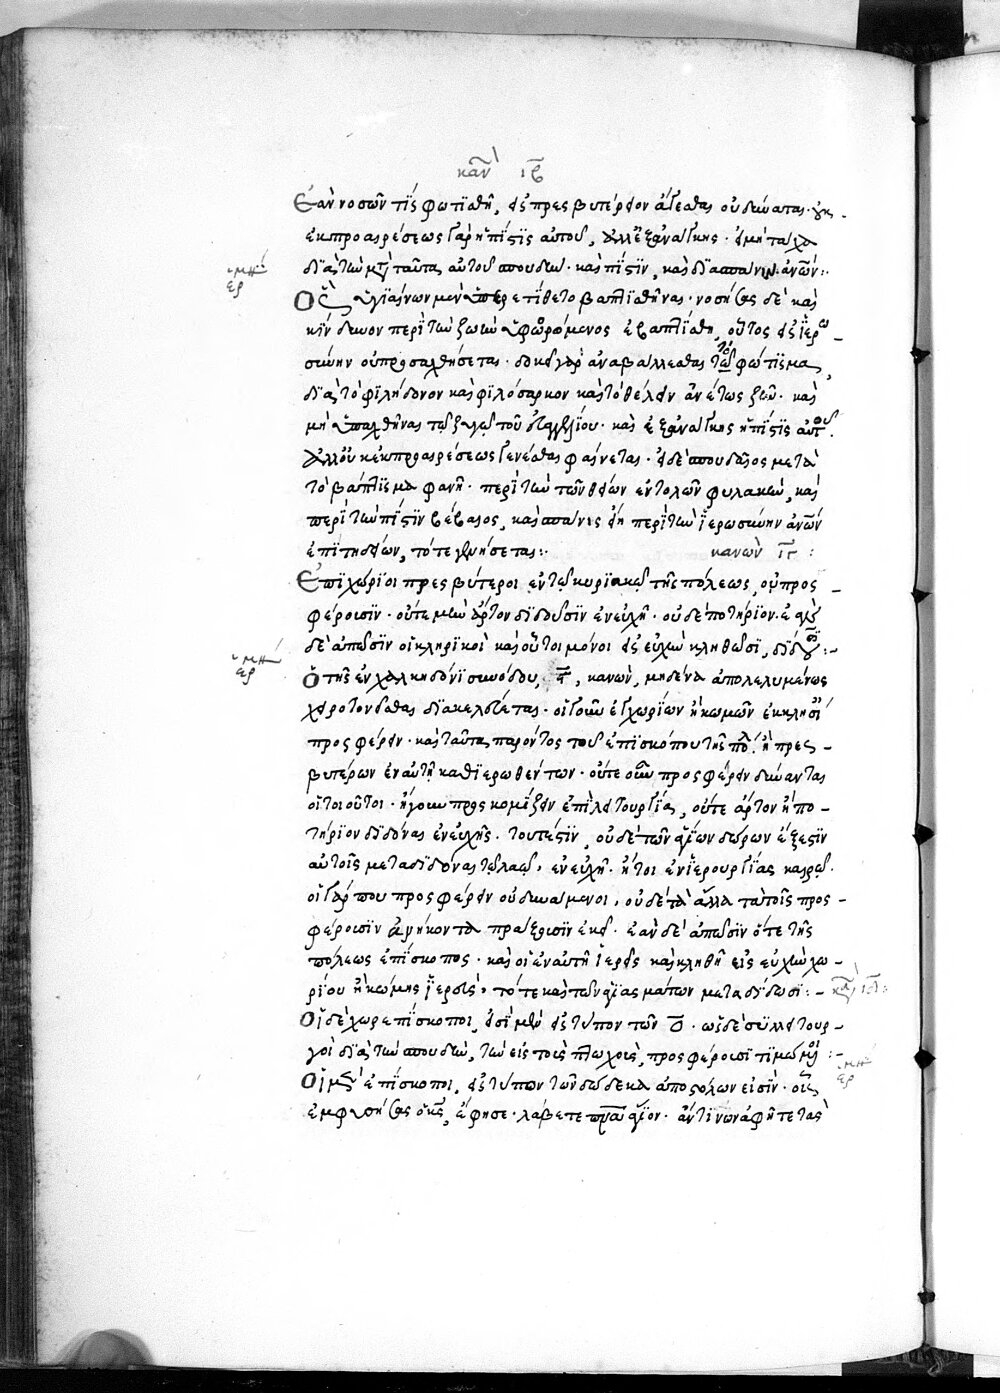 καν ιβ
Ἐὰν νοσῶν τὶς φωτισθῆ, εἰς πρεσβυτέριον ἄγεσθαι οὐ δύναται· οὐκ
ἐκ προαιρέσεως γὰρ ἡ πίστις αὐτοῦ, ἀλλ' ἐξ ἀνάγκης· εἰ μὴ τάχα
διὰ τὴν μετὰ ταῦτα αὐτοῦ σπουδὴν· καὶ πίστιν, καὶ διὰ σπάνιν ἀνων:
ἑρμη
Ὃς ὑγιαίνων μὲν ὑπερετίθετο βαπτισθῆναι· νοσήσας δὲ καὶ
κίνδυνον περὶ τὴν ζωὴν ὑφορώμενος ἐβαπτίσθη, οὗτος εἰς ἱερω
σύνην οὐ προσαχθήσεται· δοκεῖ γὰρ ἀναβάλλεσθαι τὸ φώτισμα,
διὰ τὸ φιλήδονον καὶ φιλόσαρκον καὶ τὸ θέλειν ἀνέτως ζῆν· καὶ
μὴ ὑπαχθῆναι τῷ ζυγῷ τοῦ εὐαγγελίου· καὶ ἐξ ἀνάγκης ἡ πίστις αὐτοῦ.
ἀλλ' οὐκ ἐκ προαιρέσεως γενέσθαι φαίνεται· εἰ δὲ σπουδαῖος μετὰ
τὸ βάπτισμα φανῆ· περὶ τὴν τῶν θείων ἐντολῶν φυλακὴν, καὶ
περὶ τὴν πίστιν βέβαιος, καὶ σπάνις εἴη περὶ τὴν ἱερωσύνην ἀνων
ἐπιτηδείων, τότε γενήσεται: κανὼν ιγ:
Ἐπιχώριοι πρεσβύτεροι ἐν τῷ κυριακῷ τῆς πόλεως, οὐ προσ
φέρουσιν· οὔτε μὴν ἄρτον διδοῦσιν ἐν εὐχῆ· οὐδὲ ποτήριον· ἐὰν
δὲ ἀπῶσιν οἱ κληρικοὶ καὶ οὗτοι μόνοι εἰς εὐχὴν κληθῶσι, διδόασι:
ἑρμη
Ὁ τῆς ἐν χαλκηδόνι συνόδου, κανὼν, μηδένα ἀπολελυμένως
χειροτονεῖσθαι διακελεύεται· οἱ γοῦν ἐγχωρίων ἢ κωμῶν ἐκκλησι
προσφέρειν· καὶ ταῦτα παρόντος τοῦ ἐπισκόπου τῆς πόλ ἢ πρεσ
βυτέρων ἐν αὐτῆ καθιερωθέντων· οὔτε οὖν προσφέρειν δύνανται
οἱ τοιοῦτοι· ἤγουν προσκομίζειν ἐπὶ λειτουργίας, οὔτε ἄρτον ἢ πο
τήριον διδόναι ἐν εὐχῆς· τουτέστιν, οὐδὲ τῶν ἁγίων δώρων ἔξεστιν
αὐτοῖς μεταδιδόναι τῷ λαῷ, ἐν εὐχῆ· ἤτοι ἐν ἱερουργίας καιρῷ.
οἱ γάρ που προσφέρειν οὐ δυνάμενοι, οὐδὲ τὰ ἄλλα τὰ τοῖς προσ
φέρουσιν ἀνήκοντα πράξουσιν ἐκεῖ· ἐὰν δὲ ἀπῶσιν ὅτε τῆς
πόλεως ἐπίσκοπος· καὶ οἱ ἐν αὐτῆ ἱερεῖς καὶ κληθῆ εἰς εὐχὴν χω
ρίου ἢ κώμης ἱερεὺς, τότε καὶ τῶν ἁγιασμάτων μεταδίδωσι: κα ιδ:
Οἱ δὲ χωρεπίσκοποι, εἰσὶ μὲν εἰς τύπον τῶν ο. ὡς δὲ συλλειτουρ
γοὶ διὰ τὴν σπουδὴν, τὴν εἰς τοὺς πτωχοὺς, προσφέρουσι τιμώμενοι:
ἑρμη
Οἱ μὲν ἐπίσκοποι, εἰς τύπον τῶν δώδεκα ἀποστόλων εἰσὶν· οἷς
ἐμφυσήσας ὁ κς, ἔφησε· λάβετε πνα ἅγιον· ἄν τινων ἀφῆτε τὰς